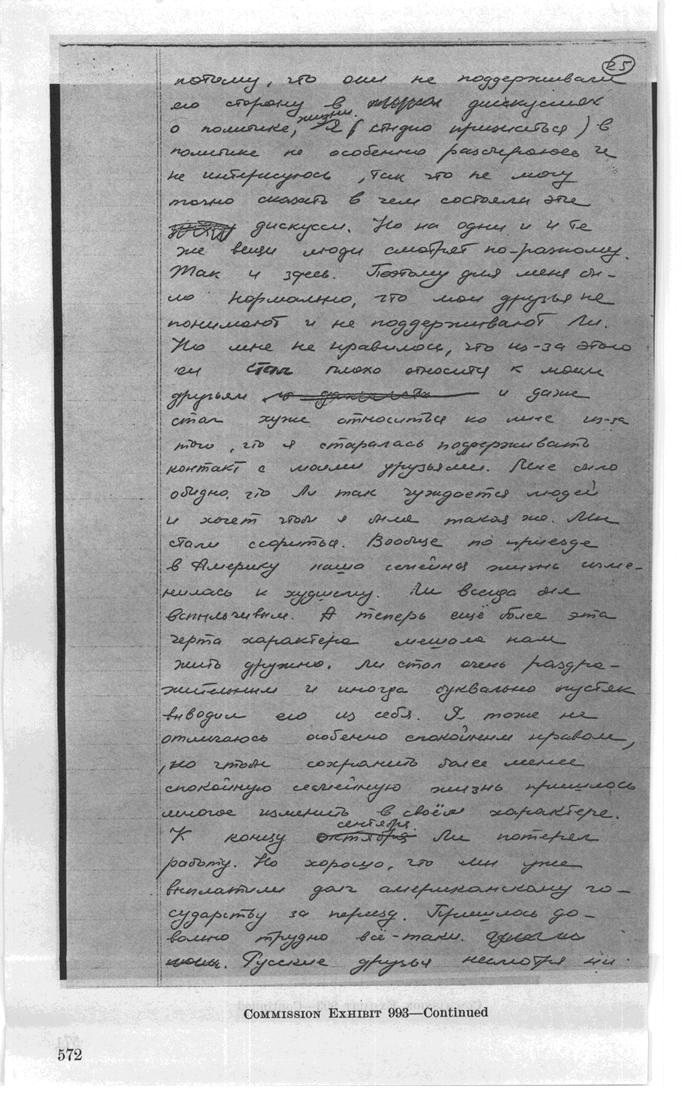 25
потому, что они не поддерживали
его сторону в дискуссиях
жизни.
о политике, Я (стыдно признаться) в
политике не особенно разбираюсь и
не интересуюсь, так что не могу
точно сказать в чем состояли эти
дискусси. Но на одни и и те
же вещи люди смотрят по-разному.
Так и здесь. Поэтому для меня бы-
ло нормально, что мои друзья не
понимают и не поддерживают Ли.
Но мне не нравилось, что из-за этого
он стал плохо относиться к моим
друзьям и даже
стал хуже относиться ко мне из-за
того, что я старалась поддерживать
контакт с моими друзьями. Мне было
обидно, что Ли так чуждается людей
и хочет чтобы я была такая же. Мы
стали ссориться. Вообще по приезде
в Америку наша семейная жизнь изме-
нилась к худшему. Ли всегда был
вспыльчивым. А теперь ещё более эта
черта характера мешала нам
жить дружно. Ли стал очень раздра-
жительным и иногда буквально пустяк
выводил его из себя. Я тоже не
отличаюсь особенно спокойным нравом,
, но чтобы сохранить более менее
спокойную семейную жизнь пришлось
многое изменить в своём характере.
сентября
К концу октября Ли потерял
работу. Но хорошо, что мы уже
выплатили долг американскому го-
сударству за переезд. Пришлось до-
вольно трудно всё-таки.
Русские друзья несмотря ни
COMMISSION EXHIBIT 993—Continued
572